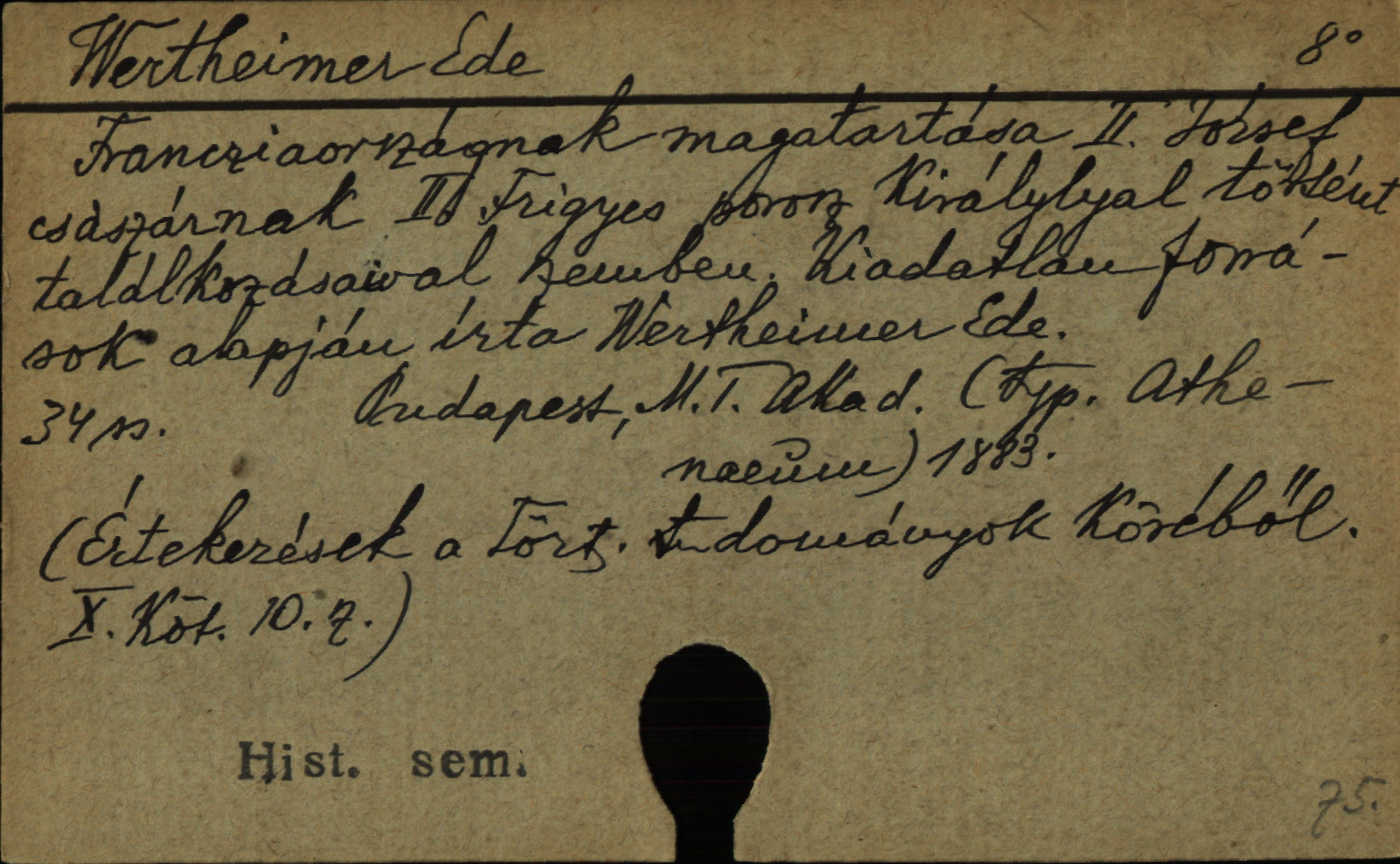 Wertheimer Ede 8°
Francziaországnak magatartása II. József
császárnak II. Frigyes porosz Királylyal történt
találkozásaival szemben. Kiadatlan forrá-
sok alapján írta Wertheimer Ede.
34 ss. Budapest, M.T. Akad. (typ. Athe-
naeum) 1883.
(Értekezések a Tört. tudományok Köréből.
X. Köt. 10. z.)
Hist. sem.
75.